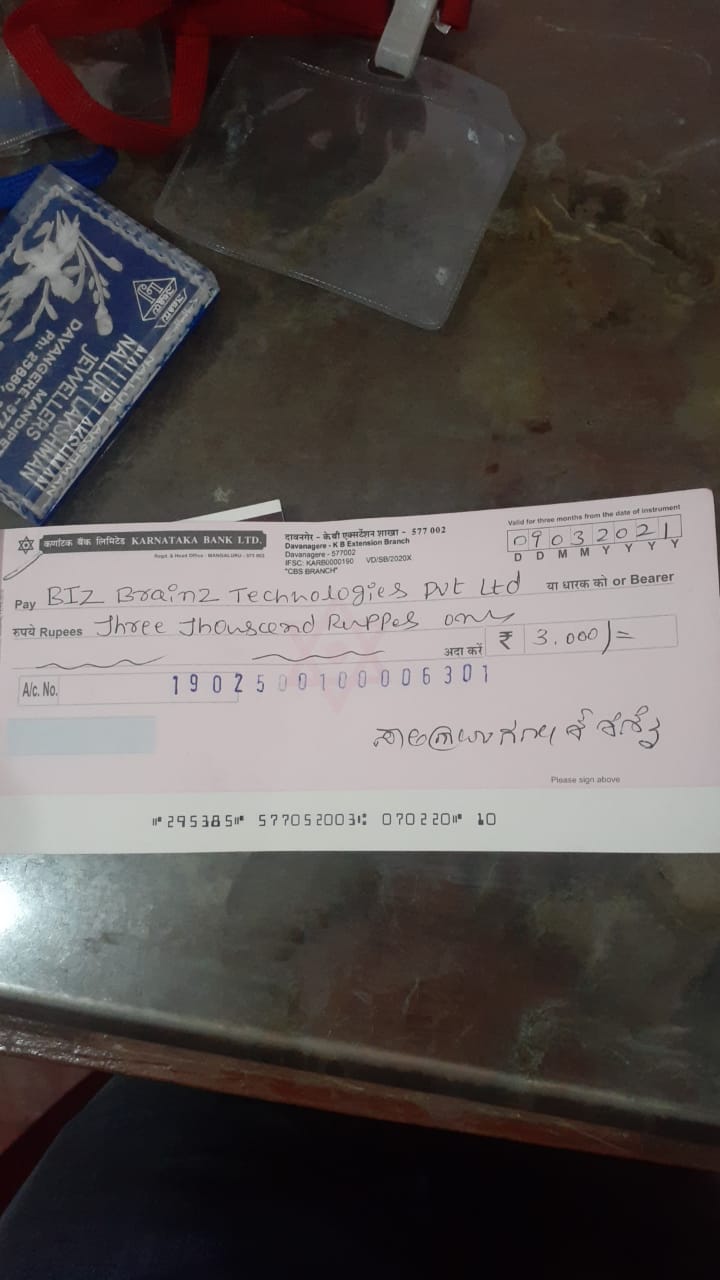 NALLUR LAKSHMAN
JEWELLERS
MANDIPET
DAVANGERE - 577
Ph: 25880,
कर्णाटक बैंक लिमिटेड KARNATAKA BANK LTD.
Regd. & Head Office - MANGALURU - 575 002
दावनगेरे - के बी एक्सटेंशन शाखा - 577 002
Davanagere - K B Extension Branch
Davanagere - 577002
IFSC: KARB0000190 VD/SB/2020X
"CBS BRANCH"
Valid for three months from the date of instrument
09032021
D D M M Y Y Y Y
Pay BIZ Brainz Technologies Pvt Ltd या धारक को or Bearer
रुपये Rupees Three Thouscend Ruppes only
अदा करें ₹ 3.000/=
A/c. No. 1902500100006301
Please sign above
⑈295385⑈ 577052003⑆ 070220⑈ 10